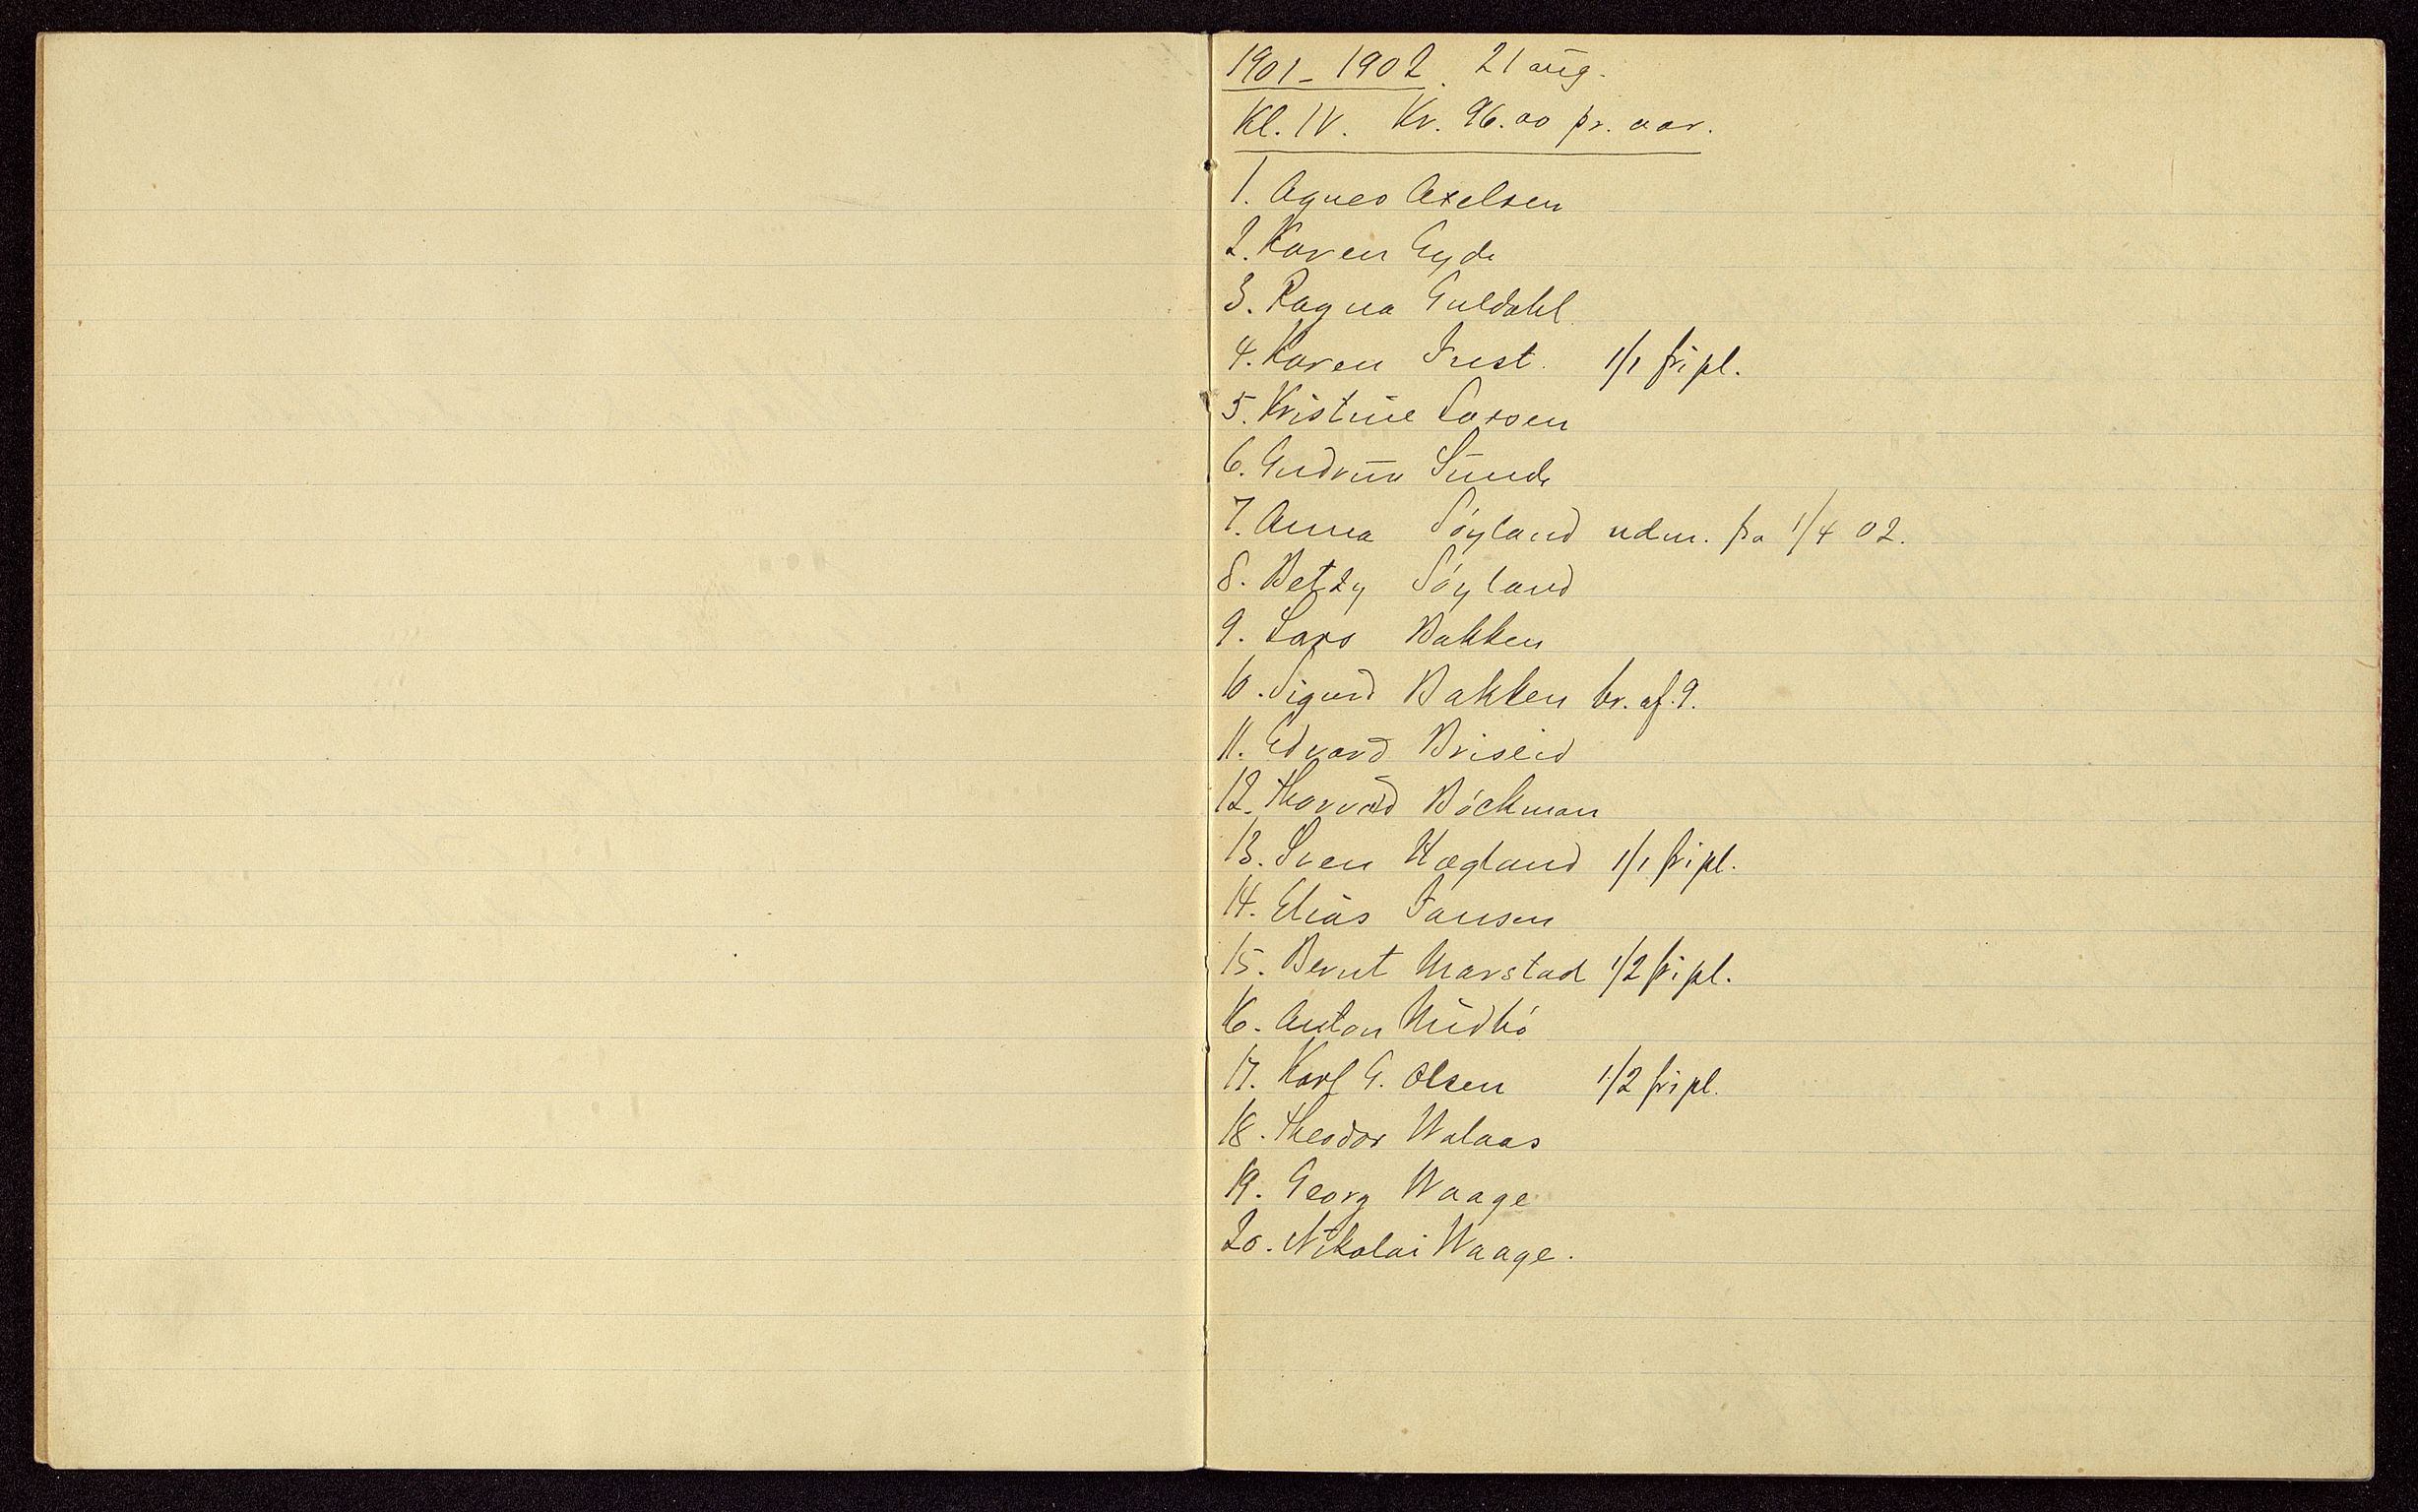 1901-1902. 21 aug.
Kl. IV. Kr. 96.00 pr. aar.
1. Agnes Axelsen
2. Karen Eyde
3. Ragna Guldahl
4. Karen 1/1 fripl.
5. Kristine Larsen
6. Gudrun Sunde
7. Anna Söyland udm. fra 1/4 02.
8. Betzy Söyland
9. Lars Bakken
10. Sigurd Bakken br. af. 9.
11. Edvard Briseid
12. Thorvald Böckman
13. Sven Hægland 1/1 fripl.
14. Elias Jansen
15. Bernt Marstad 1/2 fripl.
16. Anton Midbö
17. Karl G. Olsen 1/2 fripl.
18. Theodor Walaas
19. Georg Waage
20. Nikolai Waage.